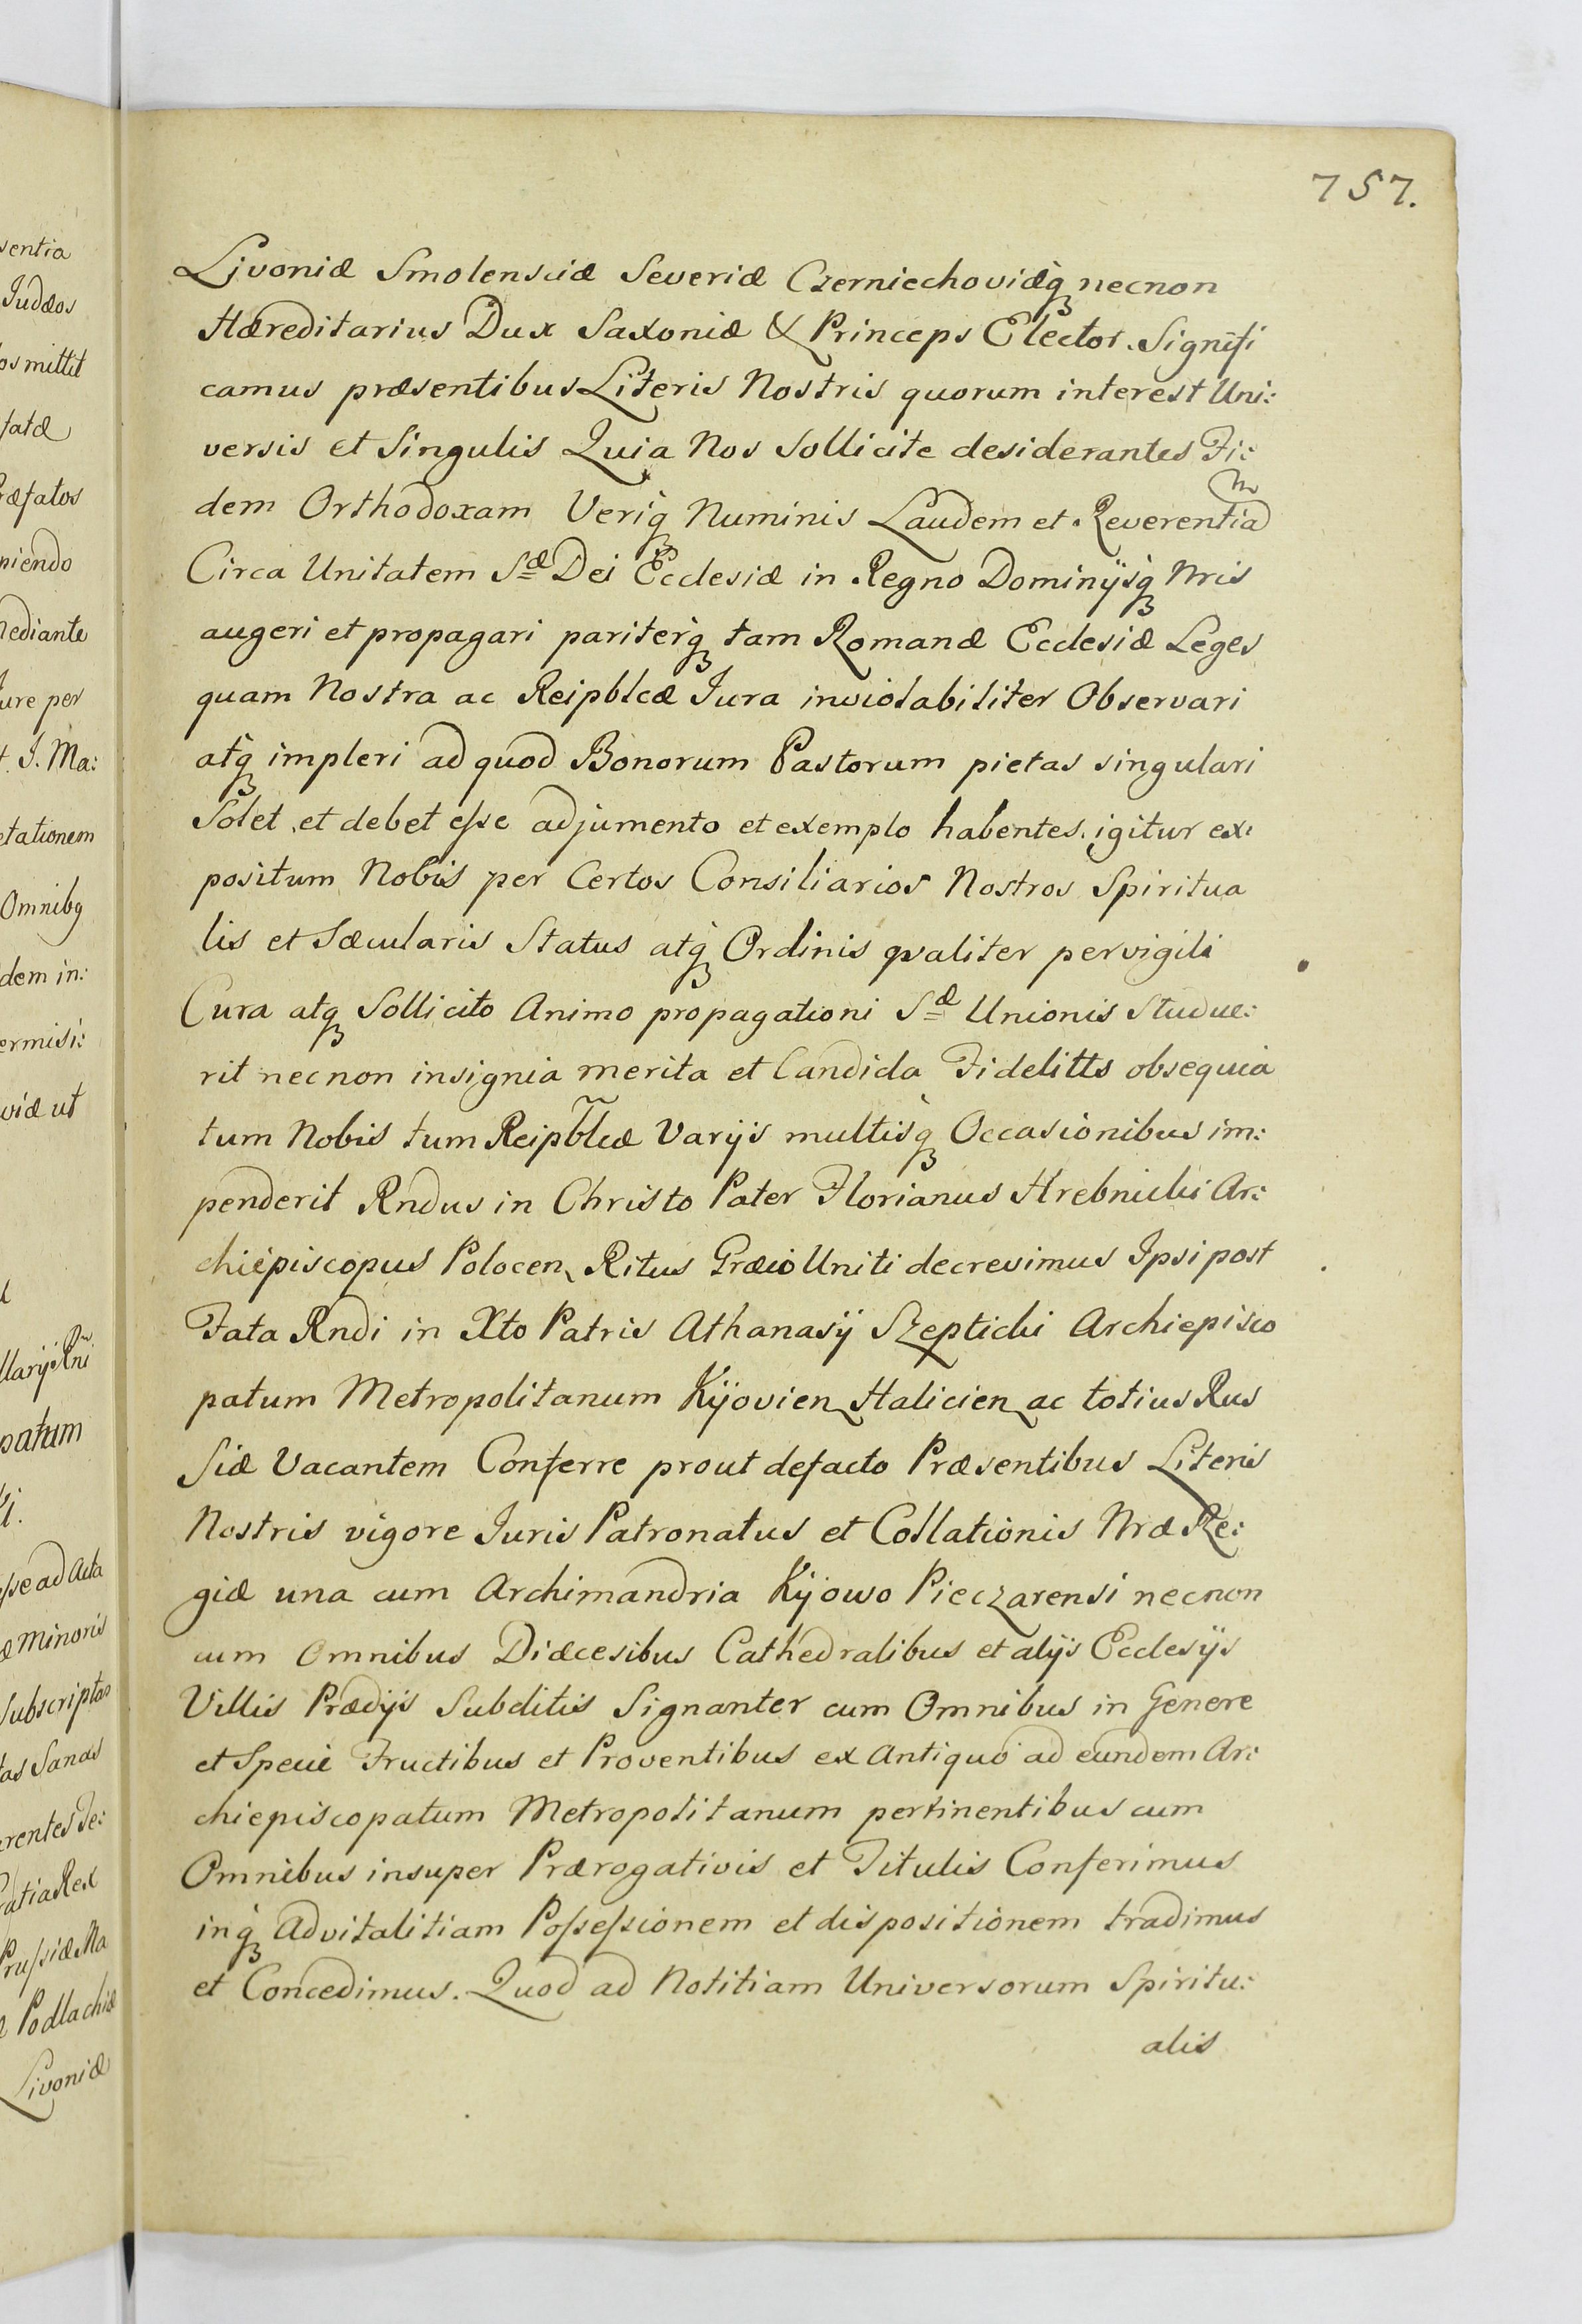 757.
ventia
Judæos
os mittit
fatæ
ræfatos
niendo
ediante
ure per
t. J. Ma:
etationem
Omnibq
dem in:
ermisi:
viæ ut
llarij Rni
patum
sse ad Acta
æ Minoris
Subscriptas
tas Sanas
erentes Se:
ratia Rex
Prussiæ Ma
Podlachiæ
Livoniæ
Livoniæ Smolensciæ Severiæ Czerniechoviæq necnon
Hæreditarius Dux Saxoniæ & Princeps Elector. Signifi
camus præsentibus Literis Nostris quorum interest Uni:
versis et Singulis Quia Nos Sollicite desiderantes Fi:
dem Orthodoxam Veriq Numinis Laudem et Reverentiam
Circa Unitatem Sæ Dei Ecclesiæ in Regno Dominijsq Nris
augeri et propagari pariterq tam Romanæ Ecclesiæ Leges
quam Nostra ac Reipblcæ Jura inviolabiliter Observari
atq impleri ad quod Bonorum Pastorum pietas singulari
Solet et debet esse adjumento et exemplo habentes igitur ex:
positum Nobis per Certos Consiliarios Nostros Spiritua
lis et Sæcularis Status atq Ordinis qvaliter pervigili
Cura atq Sollicito Animo propagationi Sæ Unionis Studue:
rit necnon insignia merita et Candida Fidelitts obsequia
tum Nobis tum Reipblcæ Varijs multisq Occasionibus im:
penderit Rndus in Christo Pater Florianus Hrebnicki Ar:
chiepiscopus Polocen Ritus Græco Uniti decrevimus Ipsi post
Fata Rndi in Xto Patris Athanasij Szepticki Archiepisco
patum Metropolitanum Kijovien Halicien ac totius Rus
siæ Vacantem Conferre prout defacto Præsentibus Literis
Nostris vigore Juris Patronatus et Collationis Nræ Re:
giæ una cum Archimandria Kijowo Pieczarensi necnon
cum Omnibus Diæcesibus Cathedralibus et alijs Ecclesijs
Villis Prædijs Subditis Signanter cum Omnibus in Genere
et Specie Fructibus et Proventibus ex Antiquo ad eundem Ar:
chiepiscopatum Metropolitanum pertinentibus cum
Omnibus insuper Prærogativis et Titulis Conferimus
inq Advitalitiam Possessionem et dispositionem tradimus
et Concedimus. Quod ad Notitiam Universorum Spiritu:
alis